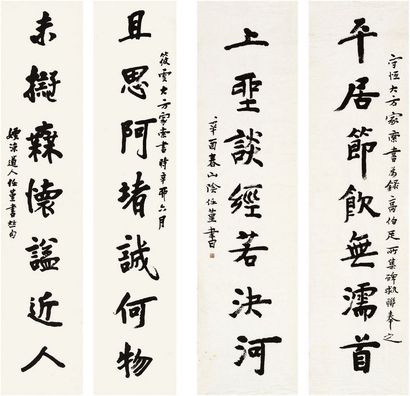 平居節飲無濡首
大方家索書為錄高伯足所集碑聯奉之
上聖談經若決河
辛酉春山陰任堇書
且思阿堵誠何物
筱雲大方家索書時辛卯六月
未擬懷謐近人
道人任堇書